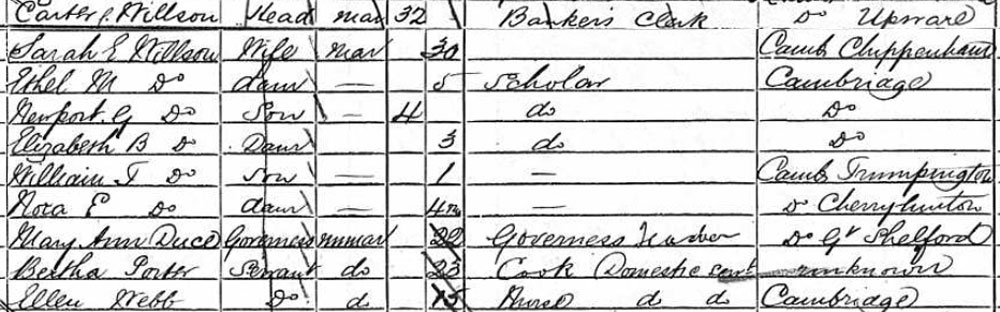 Carter J. Willson Head mar 32 Bankers Clerk Do Upware
Sarah E Willson Wife mar 30 Camb Chippenham
Ethel M Do daur — 5 Scholar Cambridge
Newport G Do Son — 4 do Do
Elizabeth B Do Daur 3 do Do
William T Do Son — 1 — Camb Trumpington
Nora E Do daur — 4m — Do Cherryhinton
Mary Ann Duce Governess unmar 22 Governess Teacher Do Gt Shelford
Bertha Porter Servant do 23 Cook Domestic servt unknown
Ellen Webb Do d 15 Nurse d d Cambridge